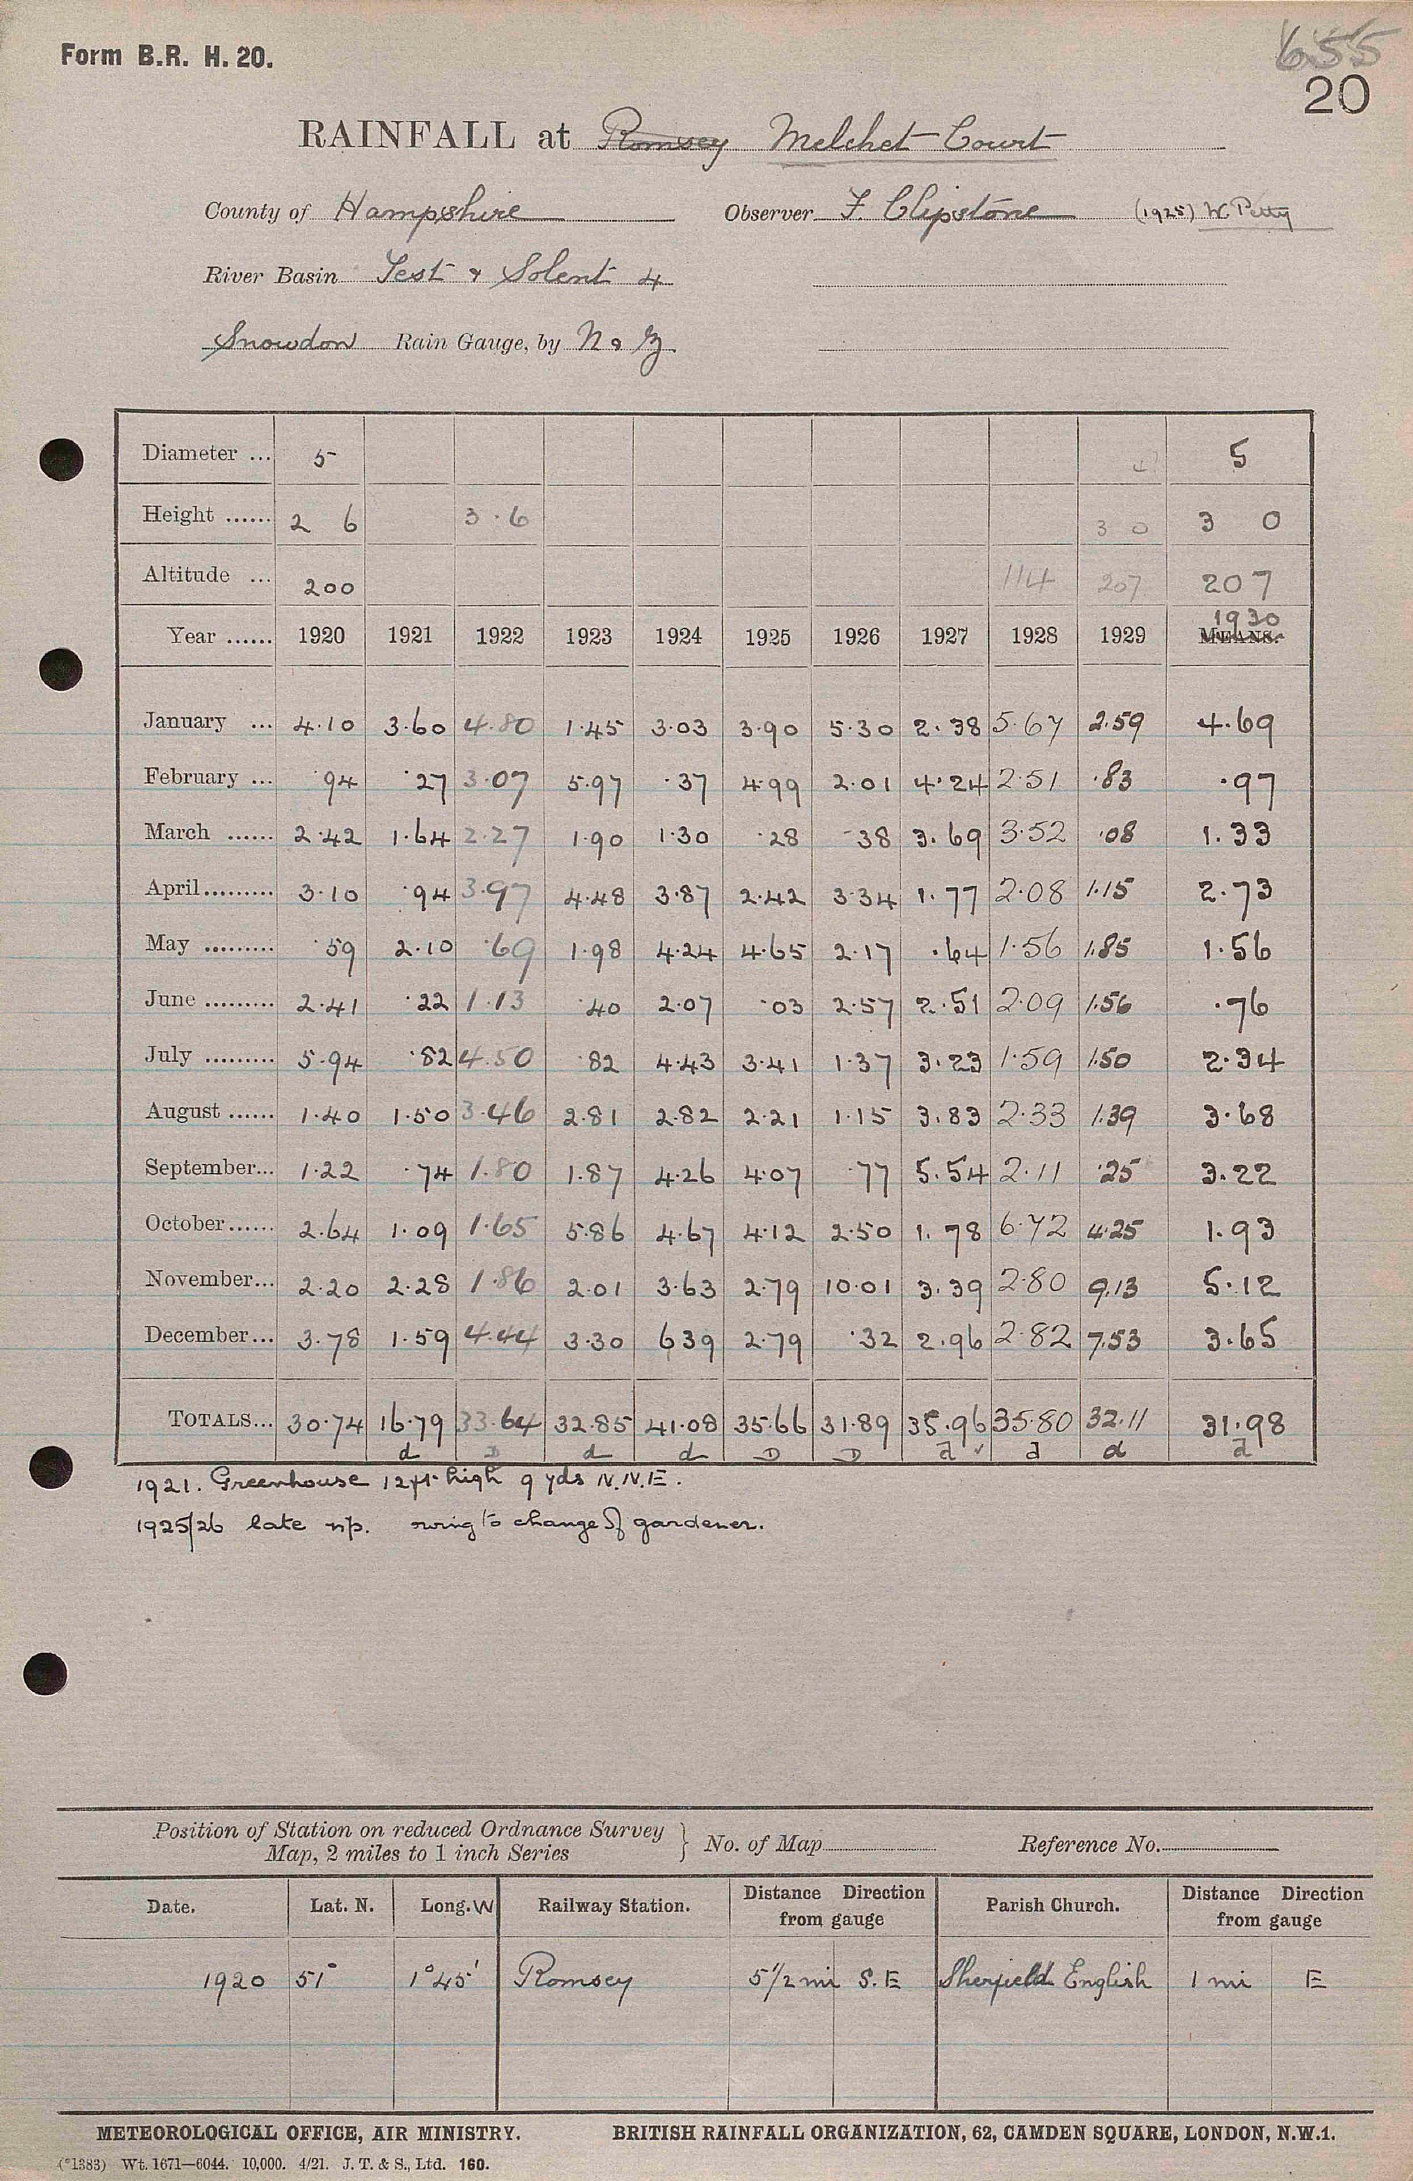 Form B.R. H. 20.
655
20
RAINFALL at Romsey Melchet Court
County of Hampshire Observer F. Clipstone (1925) W. Petty
River Basin Test & Solent 4
Snowdon Rain Gauge, by N & Z
Diameter ... 5 5
Height ...... 2 6 3.6 3 0 3 0
Altitude ... 200 114 207 207
1930
Year ...... 1920 1921 1922 1923 1924 1925 1926 1927 1928 1929 MEANS.
January ... 4.10 3.60 4.80 1.45 3.03 3.90 5.30 2.38 5.67 2.59 4.69
February ... .94 .27 3.07 5.97 .37 4.99 2.01 4.24 2.51 .83 .97
March ...... 2.42 1.64 2.27 1.90 1.30 .28 .38 3.69 3.52 .08 1.33
April ......... 3.10 .94 3.97 4.48 3.87 2.42 3.34 1.77 2.08 1.15 2.73
May ......... .59 2.10 .69 1.98 4.24 4.65 2.17 .64 1.56 1.85 1.56
June ......... 2.41 .22 1.13 .40 2.07 .03 2.57 2.51 2.09 1.56 .76
July ......... 5.94 .82 4.50 .82 4.43 3.41 1.37 3.23 1.59 1.50 2.34
August ...... 1.40 1.50 3.46 2.81 2.82 2.21 1.15 3.83 2.33 1.39 3.68
September... 1.22 .74 1.80 1.87 4.26 4.07 .77 5.54 2.11 .25 3.22
October...... 2.64 1.09 1.65 5.86 4.67 4.12 2.50 1.78 6.72 4.25 1.93
November... 2.20 2.28 1.86 2.01 3.63 2.79 10.01 3.39 2.80 9.13 5.12
December... 3.78 1.59 4.44 3.30 6 39 2.79 .32 2.96 2.82 7.53 3.65
TOTALS... 30.74 16.79 33.64 32.85 41.08 35.66 31.89 35.96 35.80 32.11 31.98
d D d d D D d ✓ d d d
1921. Greenhouse 12ft high 9 yds N.N.E.
1925/26 late n/p. owing to change of gardener.
Position of Station on reduced Ordnance Survey
Map, 2 miles to 1 inch Series } No. of Map Reference No.
Date. Lat. N. Long. W Railway Station. Distance Direction from gauge Parish Church. Distance Direction from gauge
1920 51° 1°45' Romsey 5 1/2 mi S.E Sherfield English 1 mi E
METEOROLOGICAL OFFICE, AIR MINISTRY. BRITISH RAINFALL ORGANIZATION, 62, CAMDEN SQUARE, LONDON, N.W.1.
(*1383) Wt. 1671—6044. 10,000. 4/21. J. T. & S., Ltd. 160.